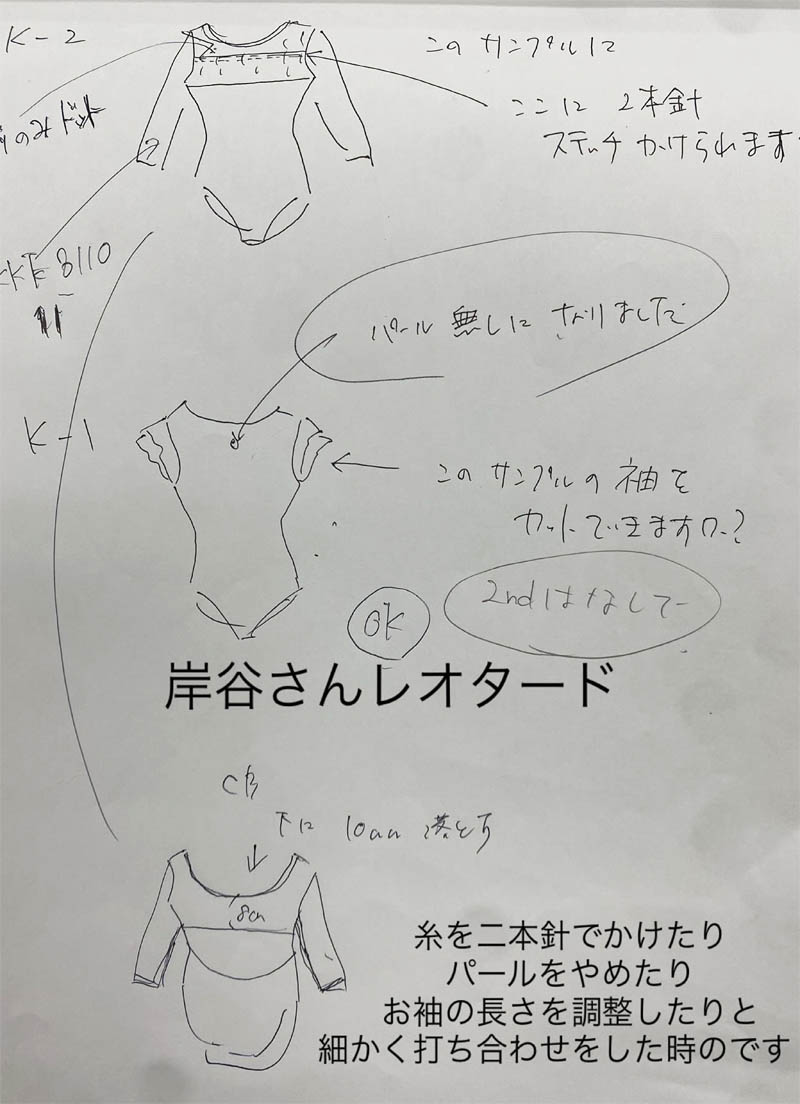 K-2
このサンプルに
ここに 2本針
ステッチ かけられます
のみ ドット
8110
11
パール 無しに なりました
K-1
このサンプルの 袖を
カットできますか?
2ndはなして
OK
岸谷さんレオタード
CB
下に 10mm 落とす
8cm
糸を二本針でかけたり
パールをやめたり
お袖の長さを調整したりと
細かく打ち合わせをした時のです